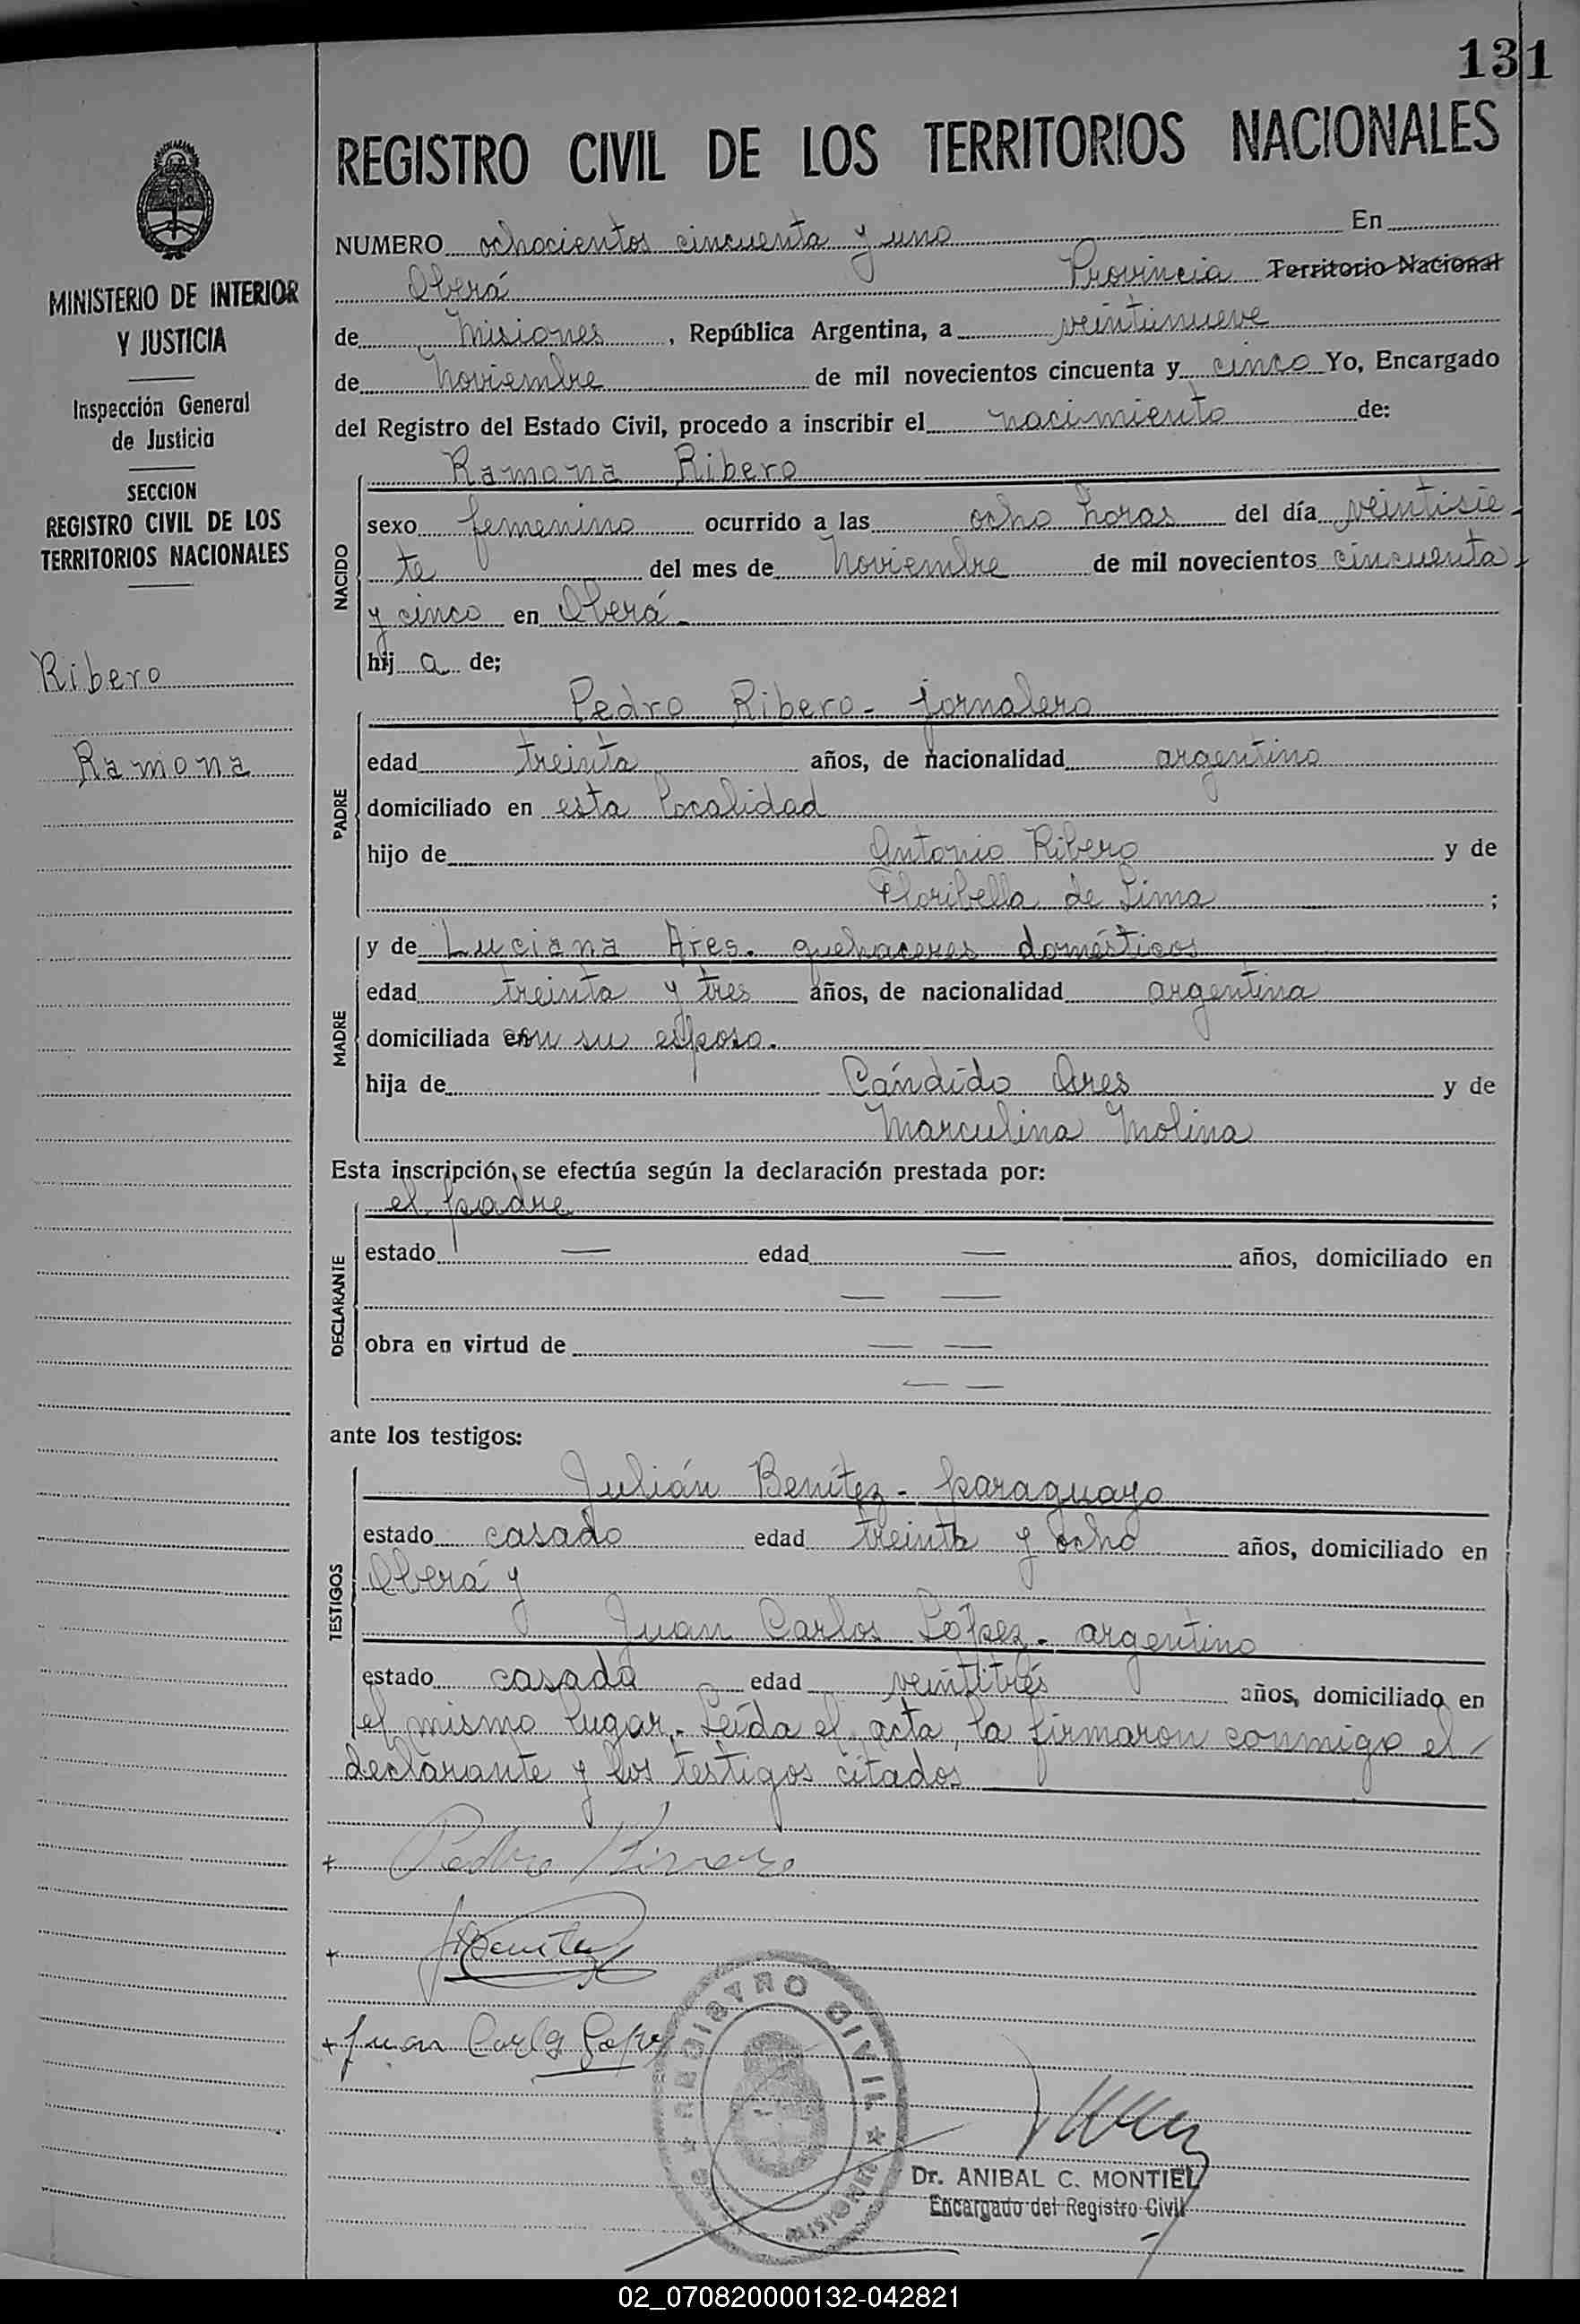 131
REGISTRO CIVIL DE LOS TERRITORIOS NACIONALES
MINISTERIO DE INTERIOR
Y JUSTICIA
Inspección General
de Justicia
SECCION
REGISTRO CIVIL DE LOS
TERRITORIOS NACIONALES
Ribero
Ramona
NUMERO ochocientos cincuenta y uno En
Oberá Provincia Territorio Nacional
de Misiones, República Argentina, a veintinueve
de Noviembre de mil novecientos cincuenta y cinco Yo, Encargado
del Registro del Estado Civil, procedo a inscribir el nacimiento de:
NACIDO
Ramona Ribero
sexo femenino ocurrido a las ocho horas del día veintisie-
te del mes de Noviembre de mil novecientos cincuenta
y cinco en Oberá-
hij a de;
PADRE
Pedro Ribero- jornalero
edad treinta años, de nacionalidad argentino
domiciliado en esta localidad
hijo de Antonio Ribero y de
Floribella de Lima ;
MADRE
y de Luciana Ares. quehaceres domésticos
edad treinta y tres años, de nacionalidad argentina
domiciliada con su esposo.
hija de Cándido Ares y de
Marculina Molina
Esta inscripción, se efectúa según la declaración prestada por:
DECLARANTE
el padre
estado — edad — años, domiciliado en
— —
obra en virtud de — —
— —
ante los testigos:
TESTIGOS
Julián Benítez- paraguayo
estado casado edad treinta y ocho años, domiciliado en
Oberá y
Juan Carlos López- argentino
estado casado edad veintitrés años, domiciliado en
el mismo lugar.- Leída el acta, la firmaron conmigo el
declarante y los testigos citados
+ Pedro Rivero
+ JBenitez
+ Juan Carlos Lopez
REGISTRO CIVIL
MISIONES
Dr. ANIBAL C. MONTIEL
Encargado del Registro Civil
02_070820000132-042821